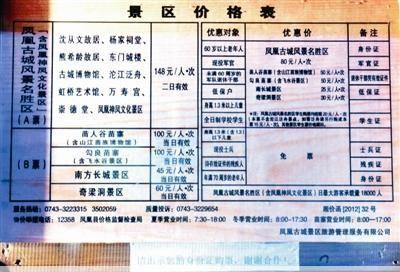 景区价格表
凤凰古城风景名胜区
(含凤凰神凤文化景区)
(A票)
沈从文故居、杨家祠堂、
熊希龄故居、东门城楼、
古城博物馆、沱江泛舟、
虹桥艺术馆、万寿宫、
崇德堂、凤凰神凤文化景区
148元/人·次
二日有效
(B票)
苗人谷苗寨
(含山江苗族博物馆)
100元/人·次
当日有效
勾良苗寨
(含飞水谷景区)
100元/人·次
当日有效
南方长城景区
45元/人·次
当日有效
奇梁洞景区
60元/人·次
当日有效
优惠对象
优惠价格
备注
60岁以上老年人
现役军官
低保户
全日制学校学生
凤凰古城风景名胜区
80元/人·次
苗人谷苗寨(含山江苗族博物馆) 50元/人·次
勾良苗寨(含飞水谷景区) 50元/人·次
南长城景区 20元/人·次
奇梁洞景区 30元/人·次
身份证
军官证
低保证
学生证
现役士兵
免票
士兵证
残疾证
年满70周岁的老年人
身份证
凤凰古城风景名胜区(含凤凰神凤文化景区)日最大游客承载量18000人
服务热线:0743-3223315 3502059
质量投诉:0743-3229654
湘价函[2012]32号
价格举报电话:12358 凤凰县价格监督检查局
夏季营业时间:7:30—18:00
冬季营业时间:8:00—17:30
苗寨营业时间:8:00—17:00
凤凰古城景区旅游管理服务有限公司
请出示您的身份证购票,谢谢合作